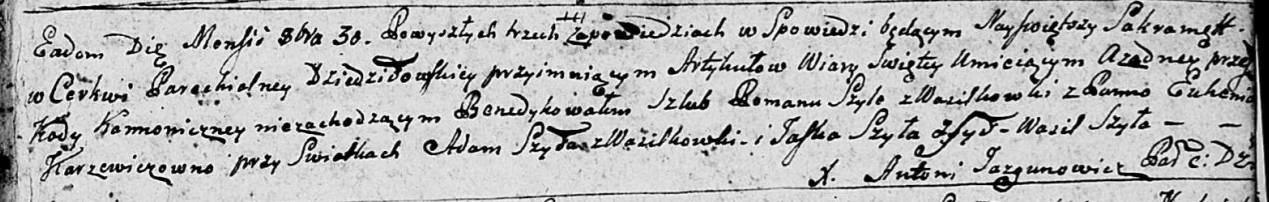 Eadem Die Mensis 8bra 30. Powyszłych trzech Zapowiedziach w Spowiedzi będącym Nayświętszy Sakramętt.
w Cerkwi Parachialney Dziedziłowskiey przyimuiącym Artykułow Wiary Swiętey Umieiącym A żadney prze
kody Kannoniczney niezachodzącym Benedykowałem Szlub Romanu Szyle z Wasilkowki z Panno Euhenio
Karzewiczowno przy Swiatkach Adam Szyła z Wasilkowki - i Jaśka Szyła Wasil Szyła - -
X. Antoni Jazgunowicz Par C: Dz